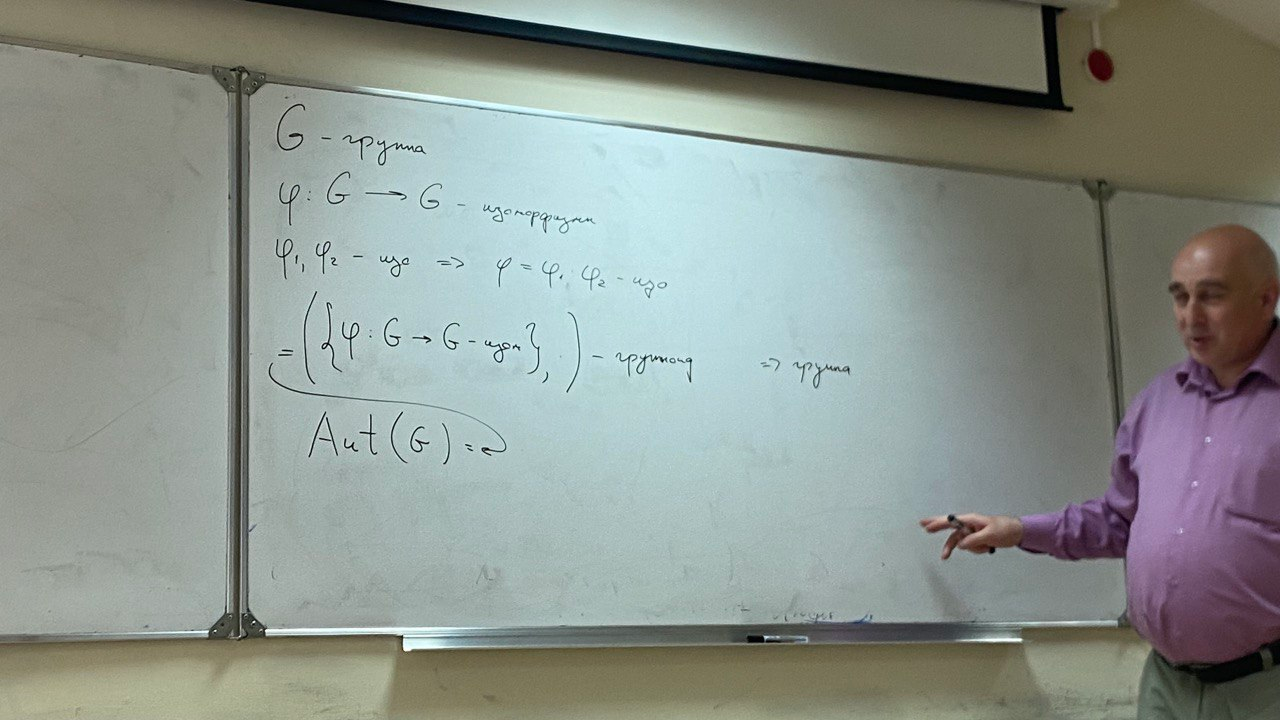 G - группа
φ: G → G - изоморфизм
φ₁, φ₂ - изо => φ = φ₁ · φ₂ - изо
= ({φ: G → G - изом}, ·) - группоид => группа
Aut(G) =